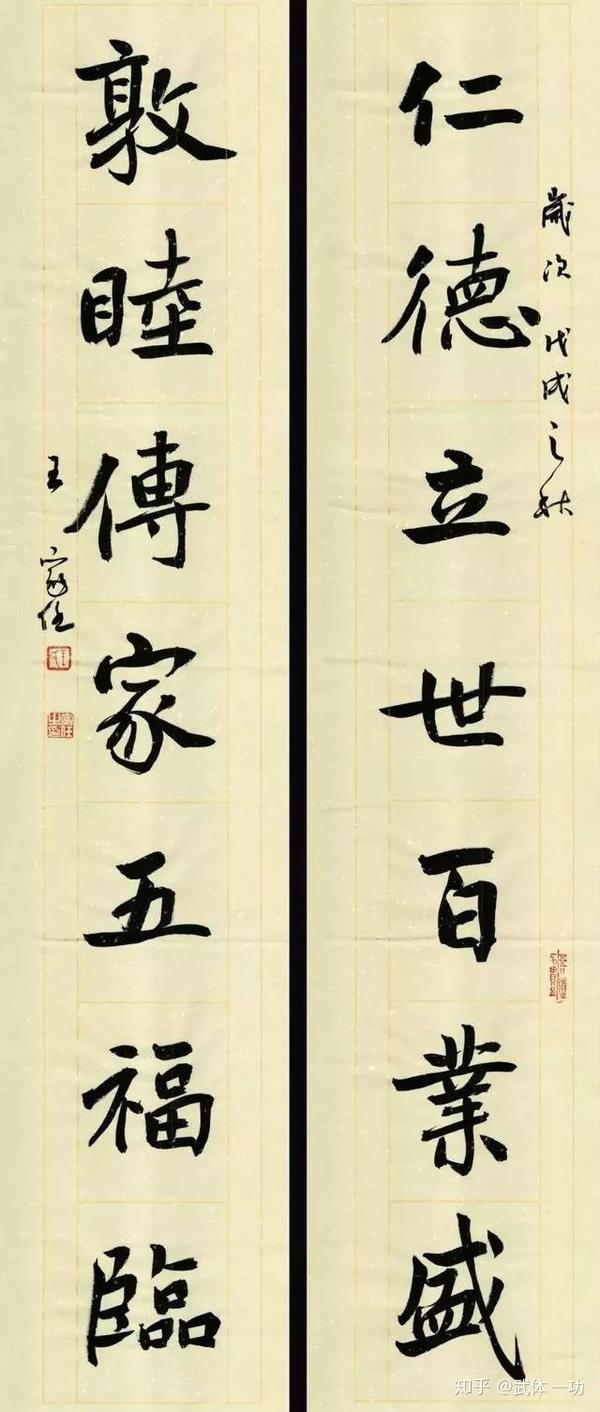 歲次戊戌之秋
仁德立世百業盛
敦睦傳家五福臨
王家任
知乎 @武体一功